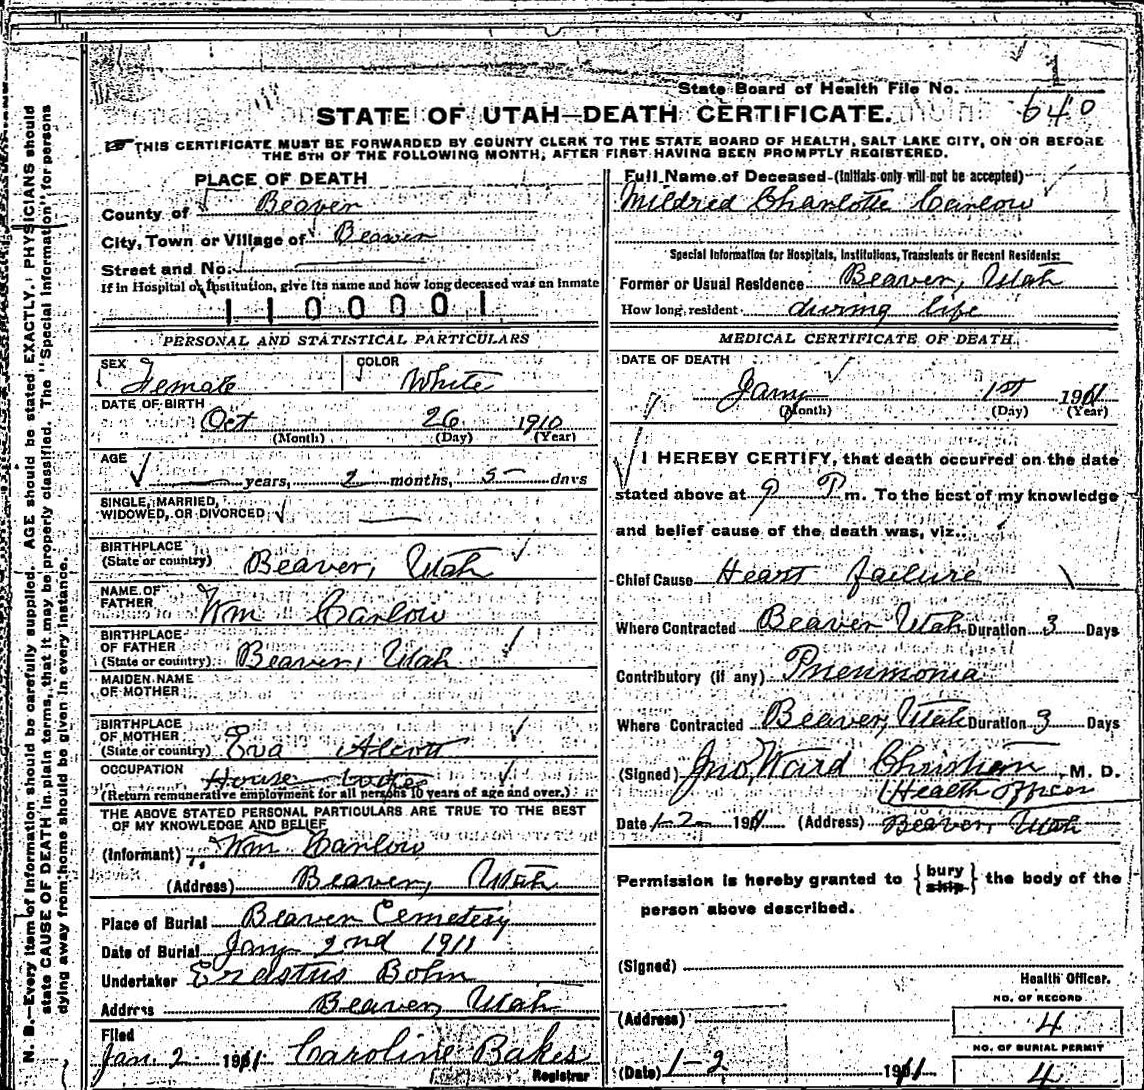 State Board of Health File No. 1
640
STATE OF UTAH—DEATH CERTIFICATE.
THIS CERTIFICATE MUST BE FORWARDED BY COUNTY CLERK TO THE STATE BOARD OF HEALTH, SALT LAKE CITY, ON OR BEFORE
THE 5TH OF THE FOLLOWING MONTH, AFTER FIRST HAVING BEEN PROMPTLY REGISTERED.
PLACE OF DEATH
County of Beaver
City, Town or Village of Beaver
Street and No.
If in Hospital or Institution, give its name and how long deceased was an inmate
1100001
PERSONAL AND STATISTICAL PARTICULARS
SEX Female COLOR White
DATE OF BIRTH
Oct 26 1910
(Month) (Day) (Year)
AGE
years, 2 months, 5 days
SINGLE, MARRIED,
WIDOWED, OR DIVORCED
BIRTHPLACE
(State or country) Beaver, Utah
NAME OF
FATHER Wm Carlow
BIRTHPLACE
OF FATHER
(State or country) Beaver, Utah
MAIDEN NAME
OF MOTHER
BIRTHPLACE
OF MOTHER
(State or country) Eva Alcott
OCCUPATION House
(Return remunerative employment for all persons 10 years of age and over.)
THE ABOVE STATED PERSONAL PARTICULARS ARE TRUE TO THE BEST
OF MY KNOWLEDGE AND BELIEF
(Informant) Wm Carlow
(Address) Beaver, Utah
Place of Burial Beaver Cemetery
Date of Burial Jany 2nd 1911
Undertaker Erastus Bohn
Address Beaver, Utah
Filed
Jan. 2 1911 Caroline Bakes
Registrar
Full Name of Deceased (Initials only will not be accepted)
Mildred Charlotte Carlow
Special Information for Hospitals, Institutions, Transients or Recent Residents:
Former or Usual Residence Beaver, Utah
How long resident during life
MEDICAL CERTIFICATE OF DEATH.
DATE OF DEATH
Jany 1st 1911
(Month) (Day) (Year)
I HEREBY CERTIFY, that death occurred on the date
stated above at 9 P m. To the best of my knowledge
and belief cause of the death was, viz.:
Chief Cause Heart failure
Where Contracted Beaver Utah Duration 3 Days
Contributory (if any) Pneumonia
Where Contracted Beaver, Utah Duration 3 Days
(Signed) Jno, Ward Christian, M. D.
Health officer
Date 1-2- 1911 (Address) Beaver, Utah
Permission is hereby granted to {bury ship} the body of the
person above described.
(Signed)
Health Officer.
(Address)
NO. OF RECORD
4
NO. OF BURIAL PERMIT
(Date) 1-2 1911 4
N. B.—Every item of information should be carefully supplied. AGE should be stated EXACTLY. PHYSICIANS should
state CAUSE OF DEATH in plain terms, that it may be properly classified. The "Special Information" for persons
dying away from home should be given in every instance.